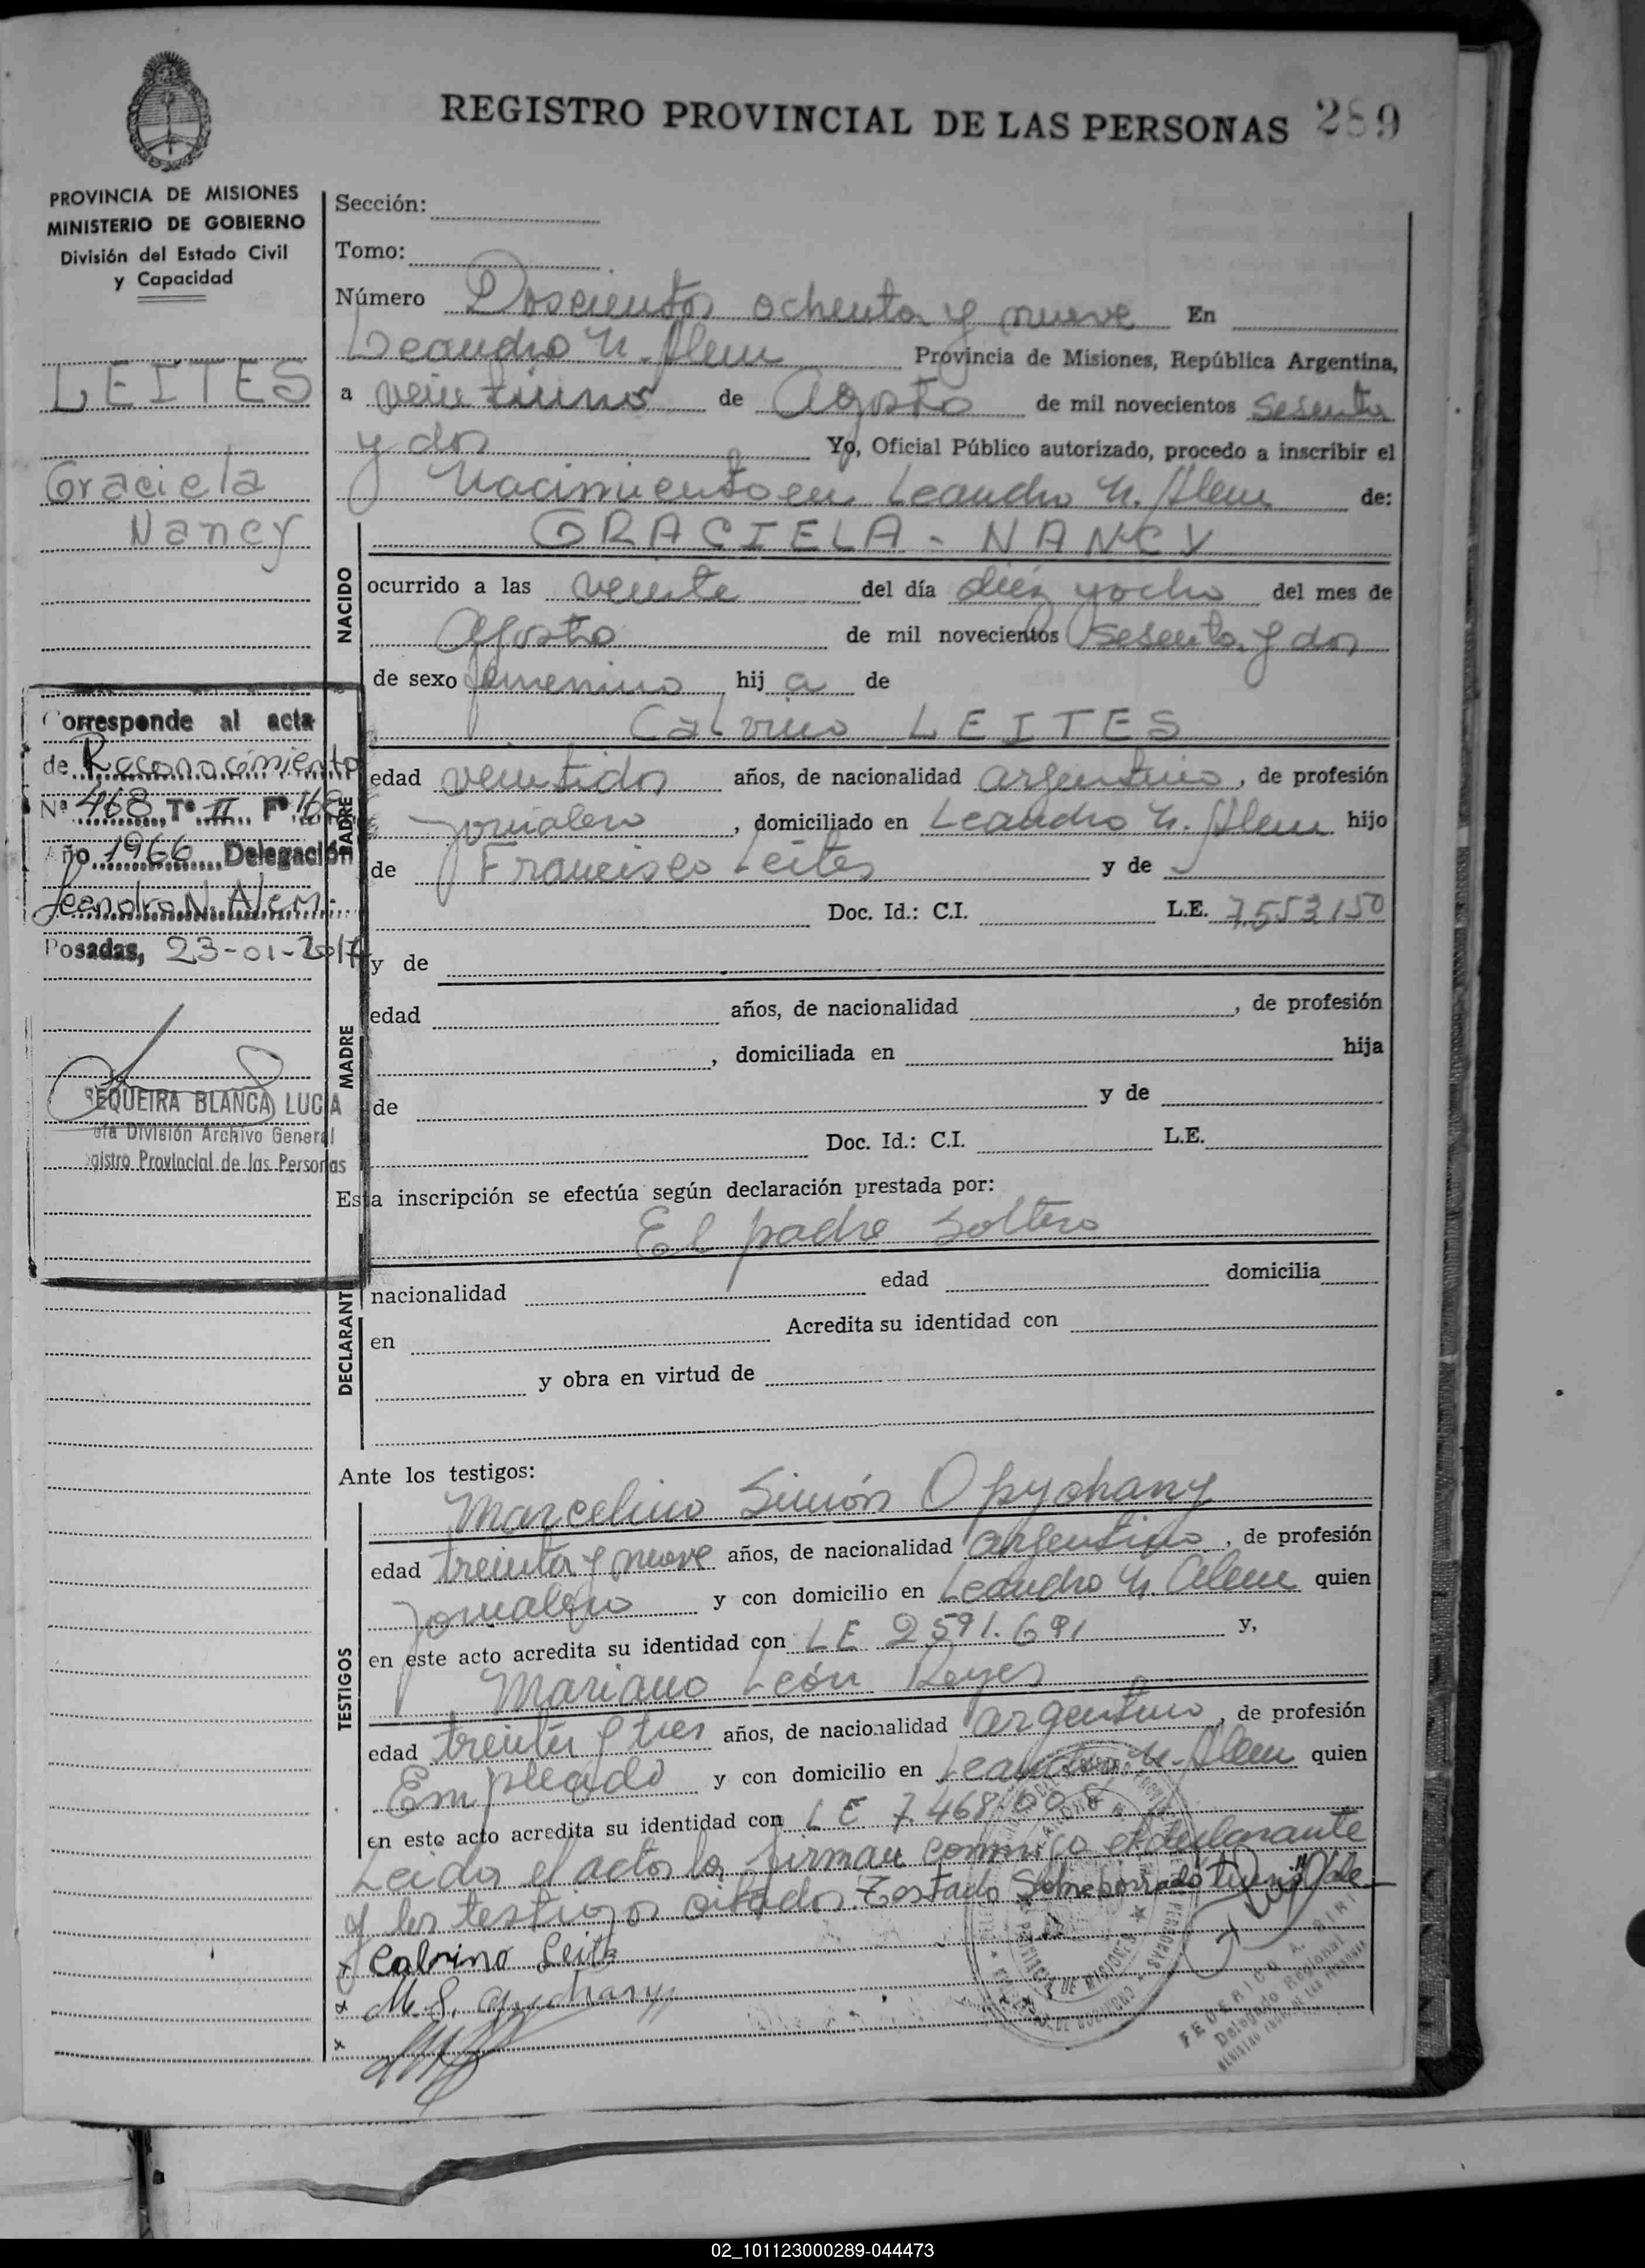 REGISTRO PROVINCIAL DE LAS PERSONAS 289
PROVINCIA DE MISIONES
MINISTERIO DE GOBIERNO
División del Estado Civil
y Capacidad
LEITES
Graciela
Nancy
Corresponde al acta
de Reconocimiento
Nº 468 Tº II Fº 168
Año 1966 Delegación
Leandro N. Alem.
Posadas, 23-01-2017
SEQUEIRA BLANCA LUCIA
División Archivo General
Registro Provincial de las Personas
Sección:
Tomo:
Número Doscientos ochenta y nueve En
Leandro N. Alem Provincia de Misiones, República Argentina,
a veintiuno de Agosto de mil novecientos sesenta
y dos Yo, Oficial Público autorizado, procedo a inscribir el
Nacimiento en Leandro N. Alem de:
NACIDO
GRACIELA - NANCY
ocurrido a las veinte del día diez y ocho del mes de
Agosto de mil novecientos sesenta y dos
de sexo femenino hija de
PADRE
Calvino LEITES
edad veintidos años, de nacionalidad argentino, de profesión
Jornalero, domiciliado en Leandro N. Alem hijo
de Francisco Leites y de
Doc. Id.: C.I. L.E. 7553150
MADRE
y de
edad años, de nacionalidad , de profesión
, domiciliada en hija
de y de
Doc. Id.: C.I. L.E.
Esta inscripción se efectúa según declaración prestada por:
El padre soltero
DECLARANT
nacionalidad edad domicilia
en Acredita su identidad con
y obra en virtud de
Ante los testigos:
TESTIGOS
Marcelino Simón Opychany
edad treinta y nueve años, de nacionalidad argentino, de profesión
Jornalero y con domicilio en Leandro N. Alem quien
en este acto acredita su identidad con LE 2591.691 y,
Mariano León Reyes
edad treinta y tres años, de nacionalidad argentino, de profesión
Empleado y con domicilio en Leandro N. Alem quien
en este acto acredita su identidad con LE 7.468.
Leida el acta la firman conmigo el declarante
y los testigos citados. Testado Sobreborrado Vale
x Calvino Leites
x M. S. Opychany
x
FEDERICO A.
Delegado Regional
02_101123000289-044473